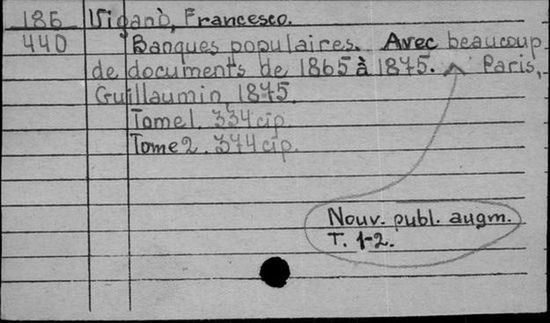 186 Viganò, Francesco.
440 Banques populaires. Avec beaucoup
de documents de 1865 à 1875. Paris,
Guillaumin, 1875.
Tome 1. 334 cip.
Tome 2. 374 cip.
Nouv. publ. augm.
T. 1-2.